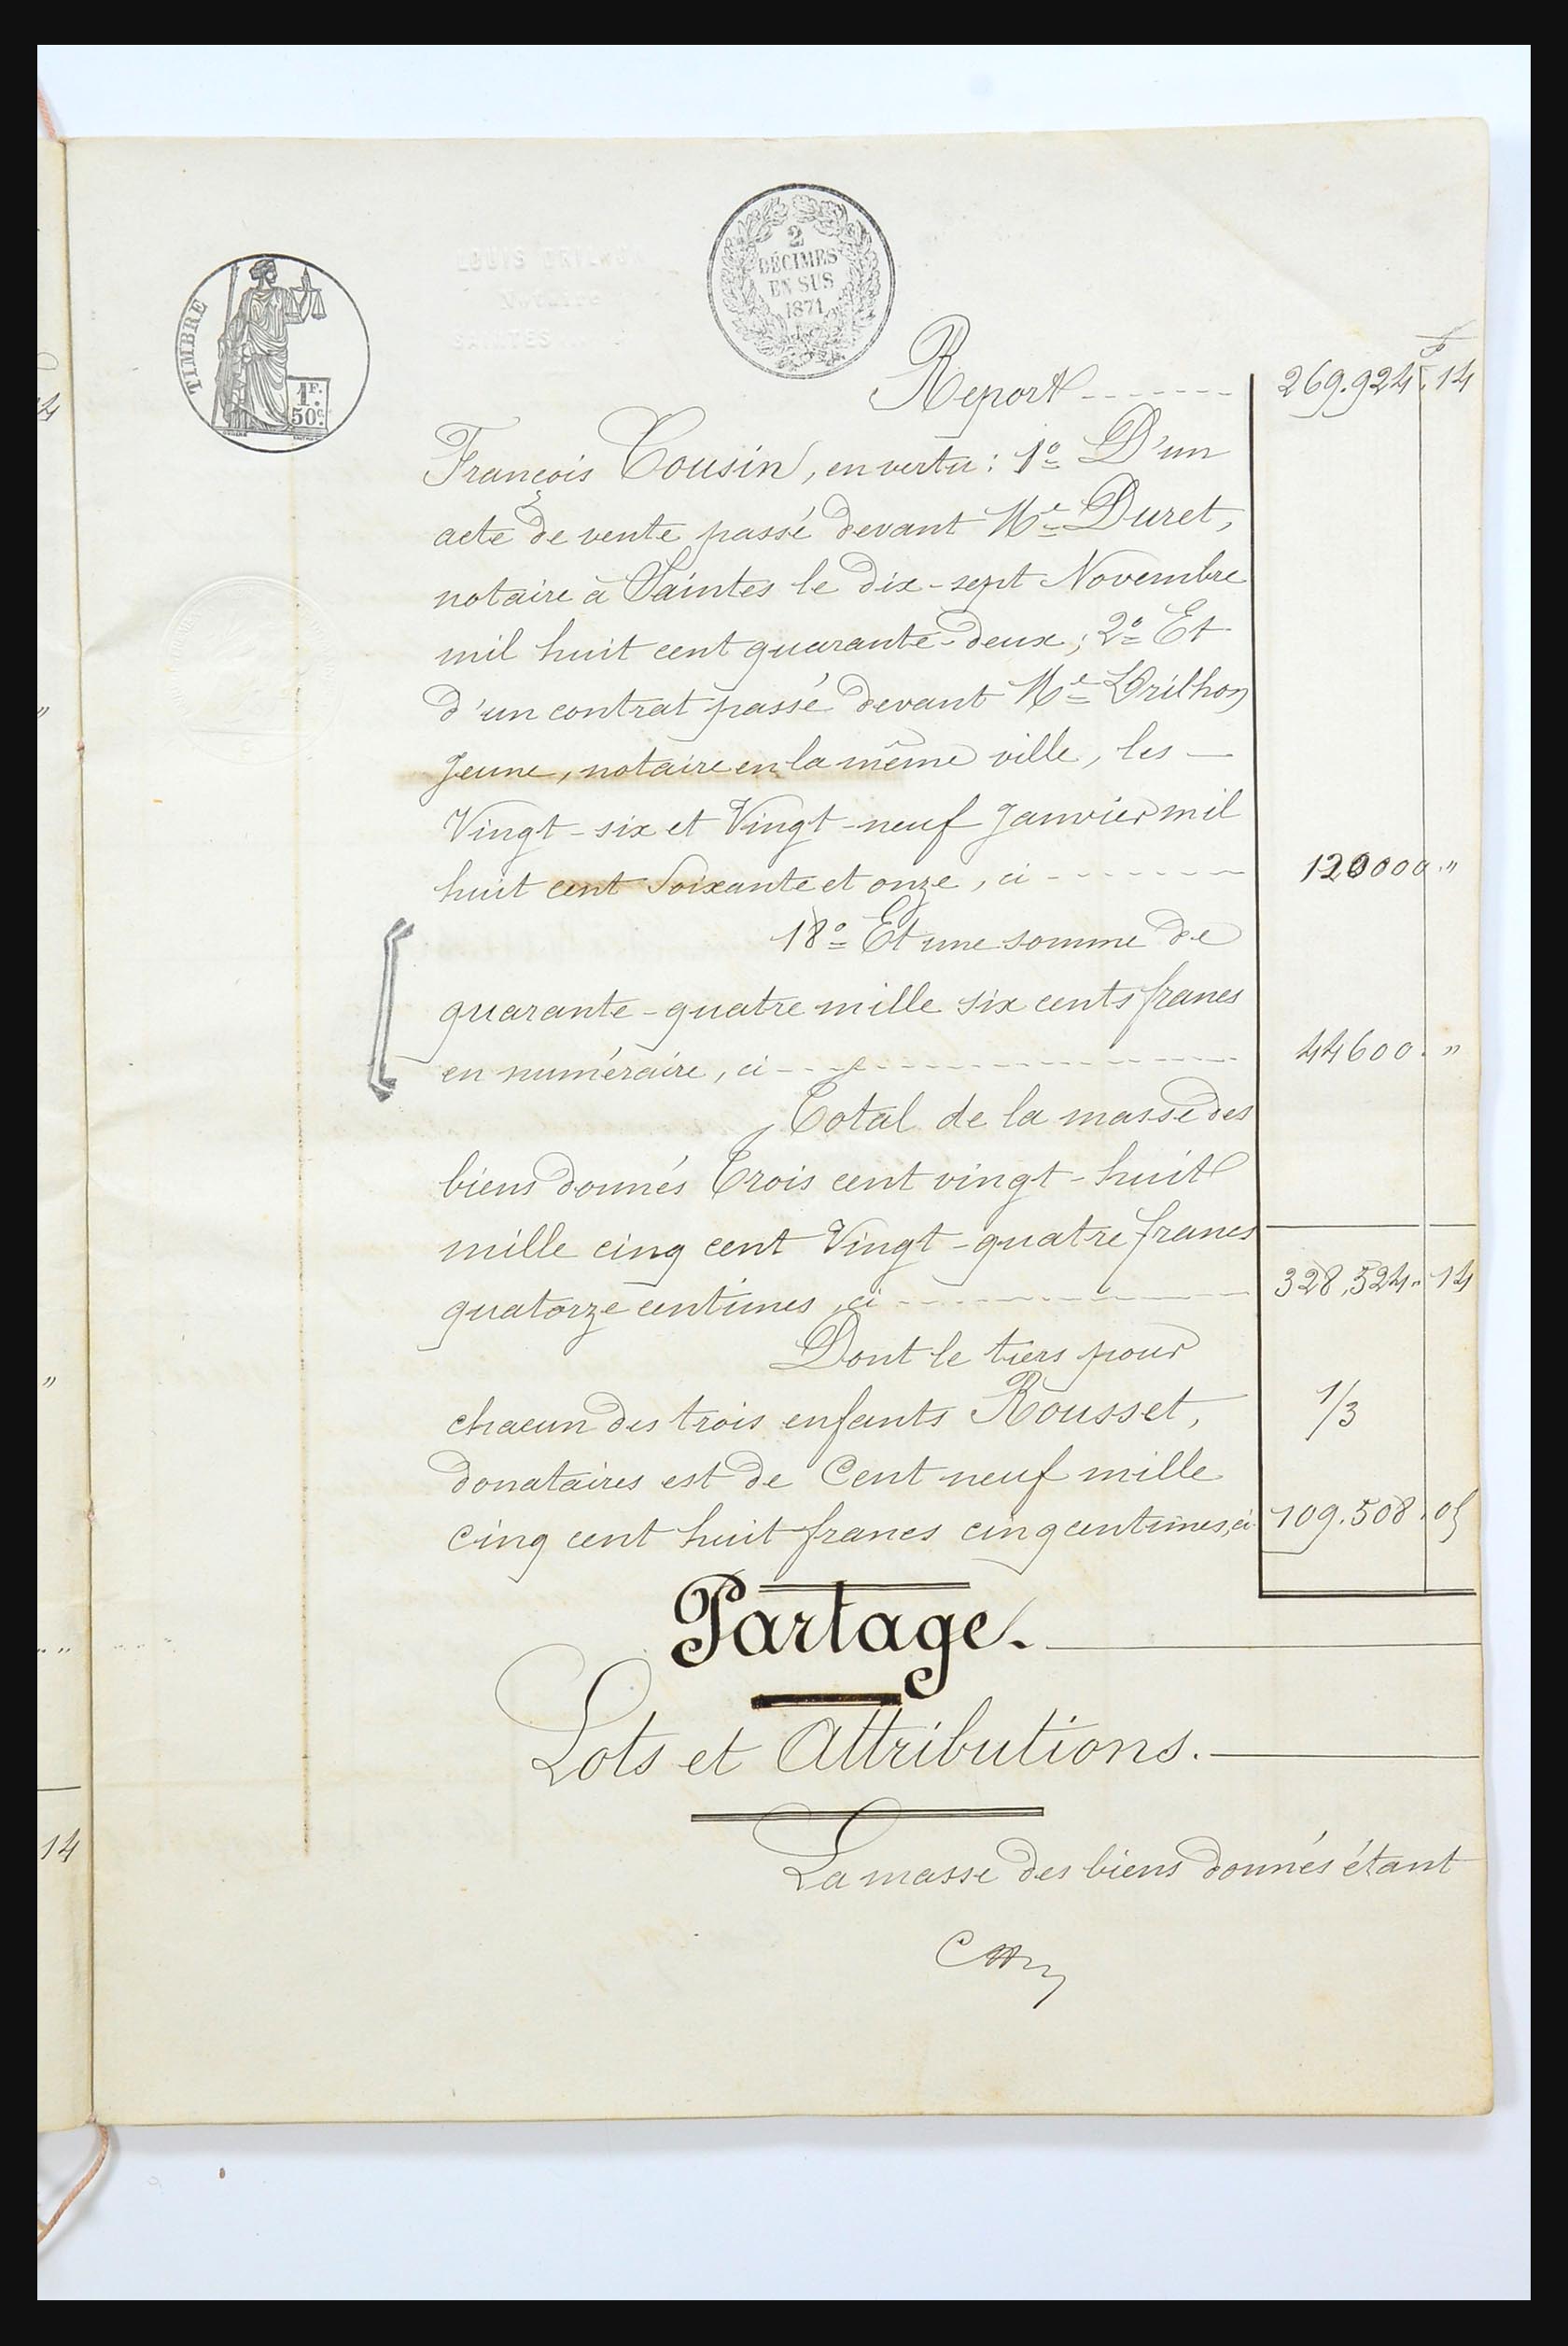 LOUIS DRILHON
Notaire
SAINTES
TIMBRE
1F.
50c.
2
DÉCIMES
EN SUS
1871
Report 269.924 . 14
François Cousin, en vertu : 1º D'un
acte de vente passé devant Me Duret,
notaire à Saintes le dix-sept Novembre
mil huit cent quarante-deux ; 2º Et
d'un contrat passé devant Me Drilhon
jeune, notaire en la même ville, les —
Vingt-six et Vingt-neuf Janvier mil
huit cent soixante et onze, ci 120000 . "
18º Et une somme de
quarante-quatre mille six cents francs
en numéraire, ci 44600 . "
Total de la masse des
biens donnés Trois cent vingt-huit
mille cinq cent Vingt-quatre francs
quatorze centimes, ci 328,524 . 14
Dont le tiers pour
chacun des trois enfants Rousset, 1/3
donataires est de Cent neuf mille
cinq cent huit francs cinq centimes, ci 109.508 . 05
Partage.
Lots et Attributions.
La masse des biens donnés étant
14